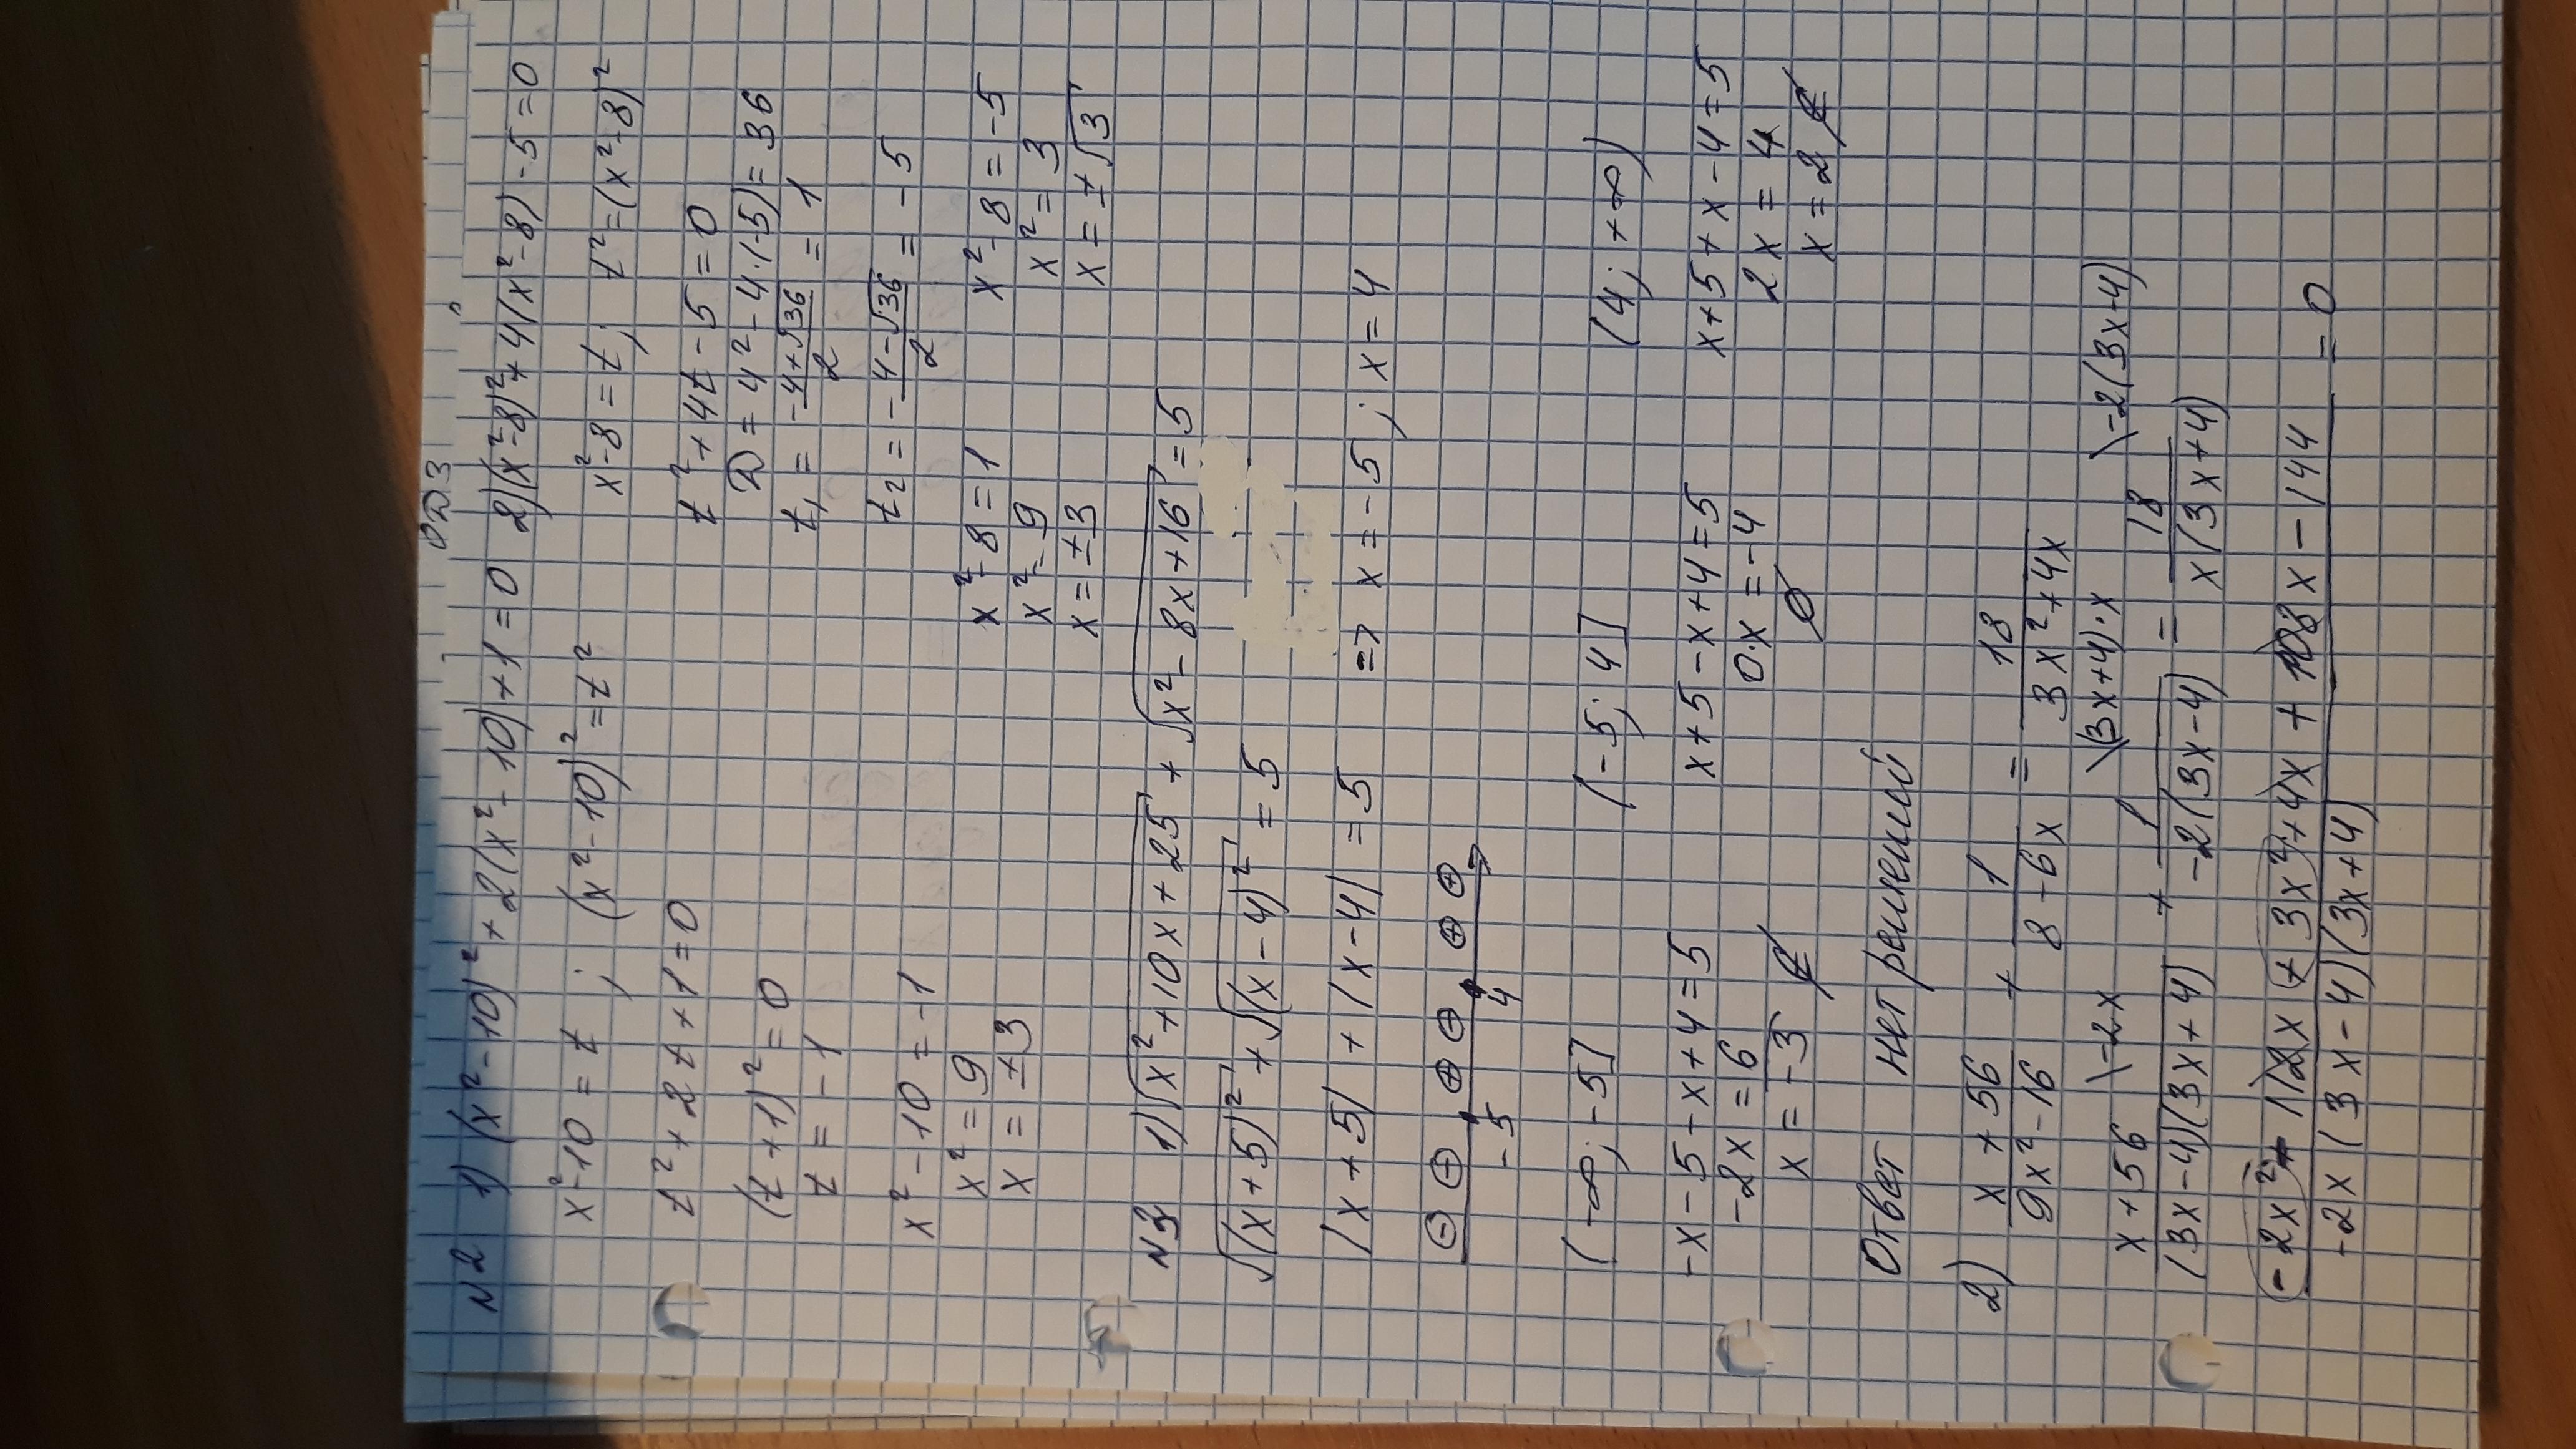 ОДЗ
№2 1) (x²-10)² + 2(x²-10) + 1 = 0 2) (x²-8)² + 4(x²-8) - 5 = 0
x²-10 = t ; (x²-10)² = t² x²-8 = t ; t² = (x²-8)²
t² + 2t + 1 = 0 t² + 4t - 5 = 0
D = 4² - 4·(-5) = 36
(t+1)² = 0 t₁ = -4+√36/2 = 1
t = -1
t₂ = -4-√36/2 = -5
x² - 10 = -1 x² - 8 = 1 x² - 8 = -5
x² = 9 x² = 9 x² = 3
x = ±3 x = ±3 x = ±√3
№3 1) √x²+10x+25 + √x²-8x+16 = 5
√(x+5)² + √(x-4)² = 5
|x+5| + |x-4| = 5 => x = -5 ; x = 4
⊖ ⊖ ⊕ ⊖ ⊕ ⊕
-5 4
(-∞; -5] (-5; 4] (4; +∞)
-x-5-x+4=5 x+5-x+4=5 x+5+x-4=5
-2x = 6 0·x = -4 2x = 4
x = -3 ∉ ∅ x = 2 ∉
Ответ нет решений
2) x+56/9x²-16 + 1/8-6x = 18/3x²+4x
x+56 \-2x/(3x-4)(3x+4) + 1 \(3x+4)·x/-2(3x-4) = 18 \-2(3x-4)/x(3x+4)
-2x² - 112x + 3x² + 4x + 108x - 144/-2x(3x-4)(3x+4) = 0